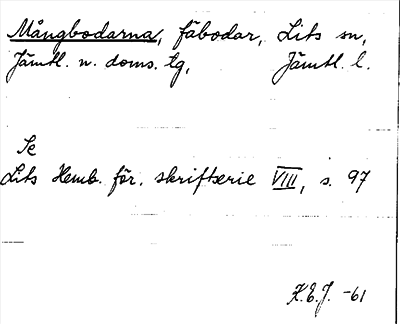 Mångbodarna, fäbodar, Lits sn,
Jämtl. n. doms. tg, Jämtl. l.
Se
Lits Hemb. för. skriftserie VIII, s. 97
K.E.J. -61